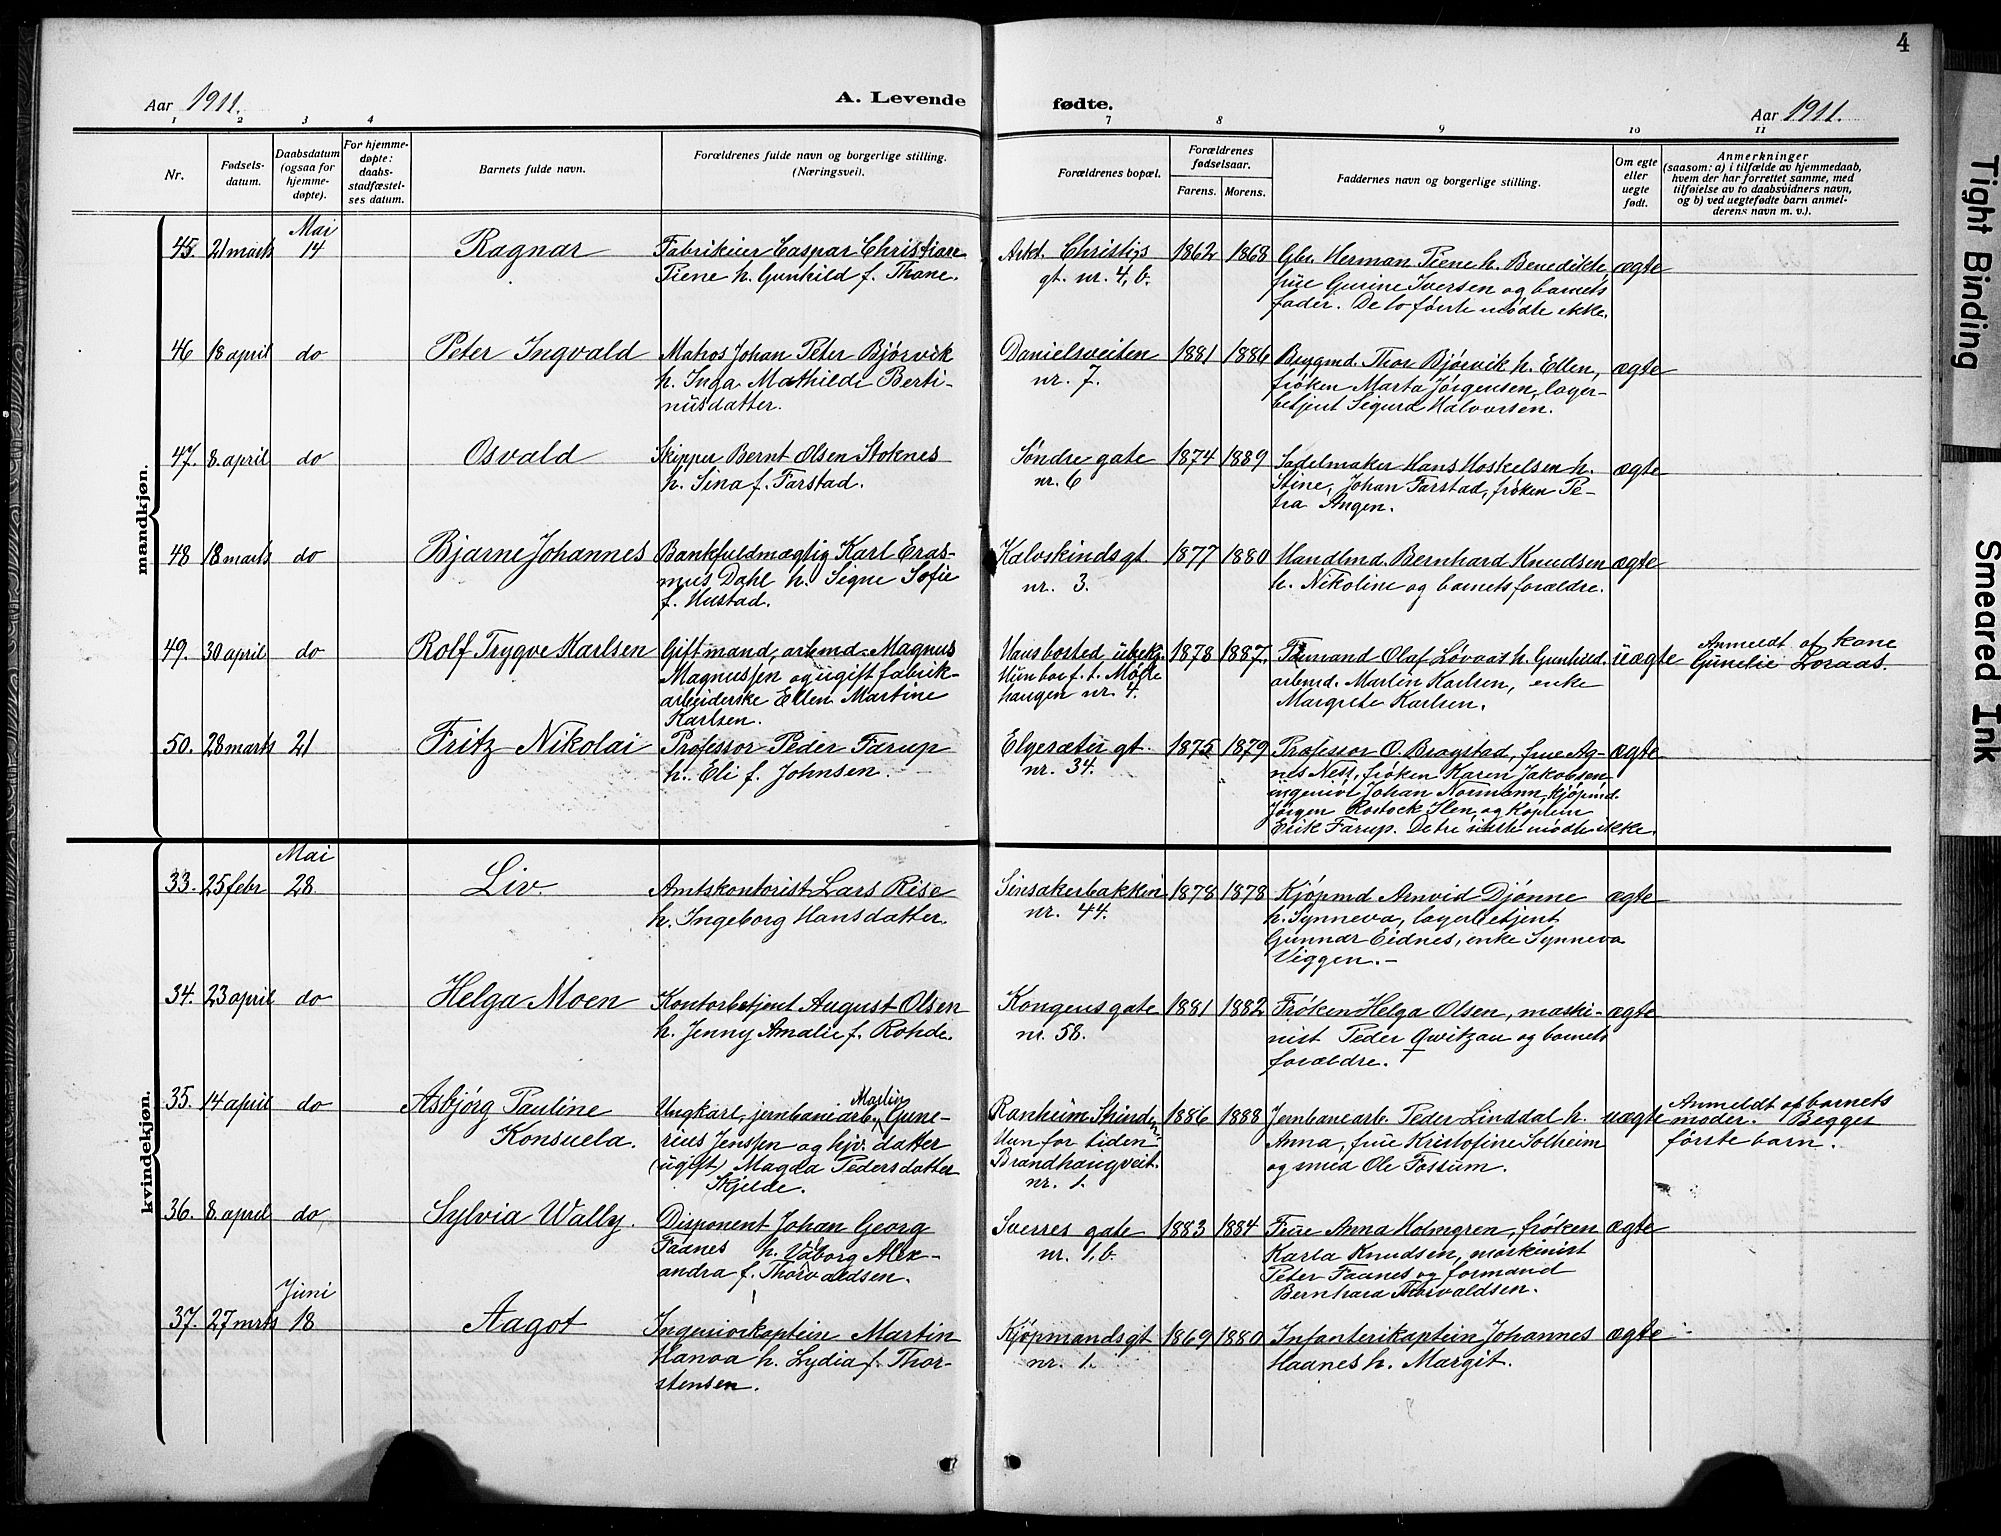 4
Aar 1911.
A. Levende fødte.
Aar 1911.
1 2 3 4 7 8 9 10 11
Nr.
Fødsels-
datum.
Daabsdatum
(ogsaa for
hjemme-
døpte).
For hjemme-
døpte:
daabs-
stadfæstel-
ses datum.
Barnets fulde navn.
Forældrenes fulde navn og borgerlige stilling.
(Næringsvei).
Forældrenes bopæl.
Forældrenes
fødselsaar.
Farens. Morens.
Faddernes navn og borgerlige stilling.
Om egte
eller
uegte
født.
Anmerkninger
(saasom: a) i tilfælde av hjemmedaab,
hvem der har forrettet samme, med
tilføielse av to daabsvidners navn,
og b) ved uegtefødte barn anmel-
derens navn m. v.).
mandkjøn.
Mai
45. 21 marts 14 Ragnar
Fabrikeier Caspar Christian
Tiene h. Gunhild f. Thane.
Arkt. Christies
gt. nr. 4, b.
1862 1868
Gbr. Herman Tiene h. Benedikte,
frue Gurine Iversen og barnets
fader. De to første mødte ikke.
ægte
46 18 april do Peter Ingvald
Matros Johan Peter Bjørvik
h. Inga Mathilde Berti-
nusdatter.
Danielsveiten
nr. 7.
1881 1886
Brygmd. Thor Bjørvik h. Ellen,
frøken Marta Jørgensen, lager-
betjent Sigurd Halvorsen.
ægte
47. 8. april do Osvald
Skipper Bernt Olsen Stoknes
h. Sina f. Farstad.
Søndre gate
nr. 6
1874 1889
Sadelmaker Hans Hoskelsen h.
Stine, Johan Farstad, frøken Pe-
tra Angen.
ægte
48 18 marts do Bjarne Johannes
Bankfuldmægtig Karl Eras-
mus Dahl h. Signe Sofie
f. Hustad.
Kalvskindsgt
nr. 3.
1877 1880
Handlmd. Bernhard Knudsen
h. Nikoline og barnets forældre.
ægte
49. 30 april do Rolf Trygve Karlsen
Gift mand, arbmd. Magnus
Magnussen og ugift fabrik-
arbeiderske Ellen Martine
Karlsen.
Hans bosted ubek.
Hun bor f. t. Mølle
haugen nr. 4.
1878 1887.
Olaf Løvaas h. Gunhild.
arbmd. Martin Karlsen, enke
Margrete Karlsen.
uægte
Anmeldt af kone
Gunelie Loraas
50. 28 marts 21 Fritz Nikolai
Professor Peder Farup
h. Eli f. Johnsen.
Elgesæter gt.
nr. 34.
1875 1879
Professor O. Bragstad, frue Ag-
nes Ness, frøken Karen Jakobsen,
ingeniør Johan Normann, kjøpmd.
Jørgen Rostock Ilen, og kaptein
Erik Farup. De tre sidste mødte ikke.
ægte
kvindekjøn.
Mai
33. 25 febr 28 Liv.
Amtskontorist Lars Rise
h. Ingeborg Hansdatter.
Sinsakerbakken
nr. 44.
1878 1878
Kjøpmd Arnvid Djønne
h. Synneva, lagerbetjent
Gunnar Eidnes, enke Synneva
Viggen. -
ægte
34. 23 april do Helga Moen
Kontorbetjent August Olsen
h. Jenny Amalie f. Rohde.
Kongens gate
nr. 58.
1881 1882
Frøken Helga Olsen, maski-
nist Peder Qwitzau og barnets
forældre.
ægte
35. 14 april do Asbjørg Pauline
Konsuela.
Ungkarl, jernbanearb. Martin Gune-
rius Jenssen og hjv. datter
(ugift) Magda Pedersdatter
Skjelde.
Ranheim Strinden
Hun for tiden
Brandhaugveit.
nr. 1.
1886 1888
Jernbanearb. Peder Linddal h.
Anna, frue Kristofine Solheim
og smed Ole Fossum.
uægte
Anmeldt af barnets
moder. Begges
første barn.
36. 8. april do Sylvia Wally.
Disponent Johan Georg
Faanes h. Valborg Alex-
andra f. Thorvaldsen.
Sverres gate
nr. 1, b.
1883 1884
Frue Anna Holmgren, frøken
Karla Knudsen, maskinist
Peter Faanes og formand
Bernhard Thorvaldsen.
ægte
Juni
37. 27 mrts 18 Aagot
Ingeniørkaptein Martin
Hanoa h. Lydia f. Thor-
stensen.
Kjøpmandsgt
nr. 1.
1869 1880
Infanterikaptein Johannes
Haanes h. Margit.
ægte
Tight Binding
Smeared Ink